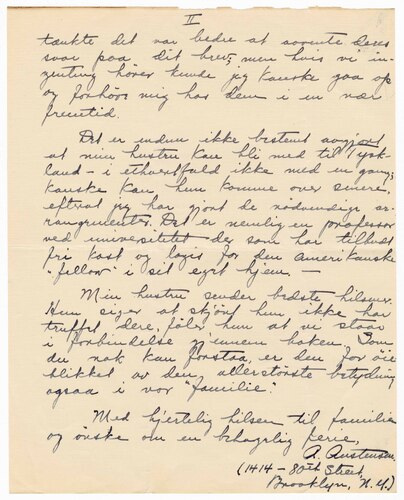 II
tænkte det var bedre at avvente Deres
svar paa dit brev, men hvis vi in-
genting hører kunde jeg kanske gaa op
og forhøre mig hos dem i en nær
fremtid.
Det er endnu ikke bestemt avgjort
at min hustru kan bli med til Tysk-
land - i ethvertfald ikke med en gang;
kanske kan hun komme over senere,
eftrat jeg har gjort de nødvendige ar-
rangementer. Det er nemlig en professor
ved universitetet der som har tilbudt
fri kost og logis for den amerikanske
"fellow" i sit eget hjem. -
Min hustru sender bedste hilsener.
Hun siger at skjønt hun ikke har
truffet dere, føler hun at vi staar
i forbindelse gjennem boken. Som
du nok kan forstaa, er den for øie
blikket av den allerstørste betydning
ogsaa i vor "familie".
Med hjertelig hilsen til familien
og ønske om en behagelig ferie,
A. Austensen
(1414 - 80th Street,
Brooklyn, N.Y.)